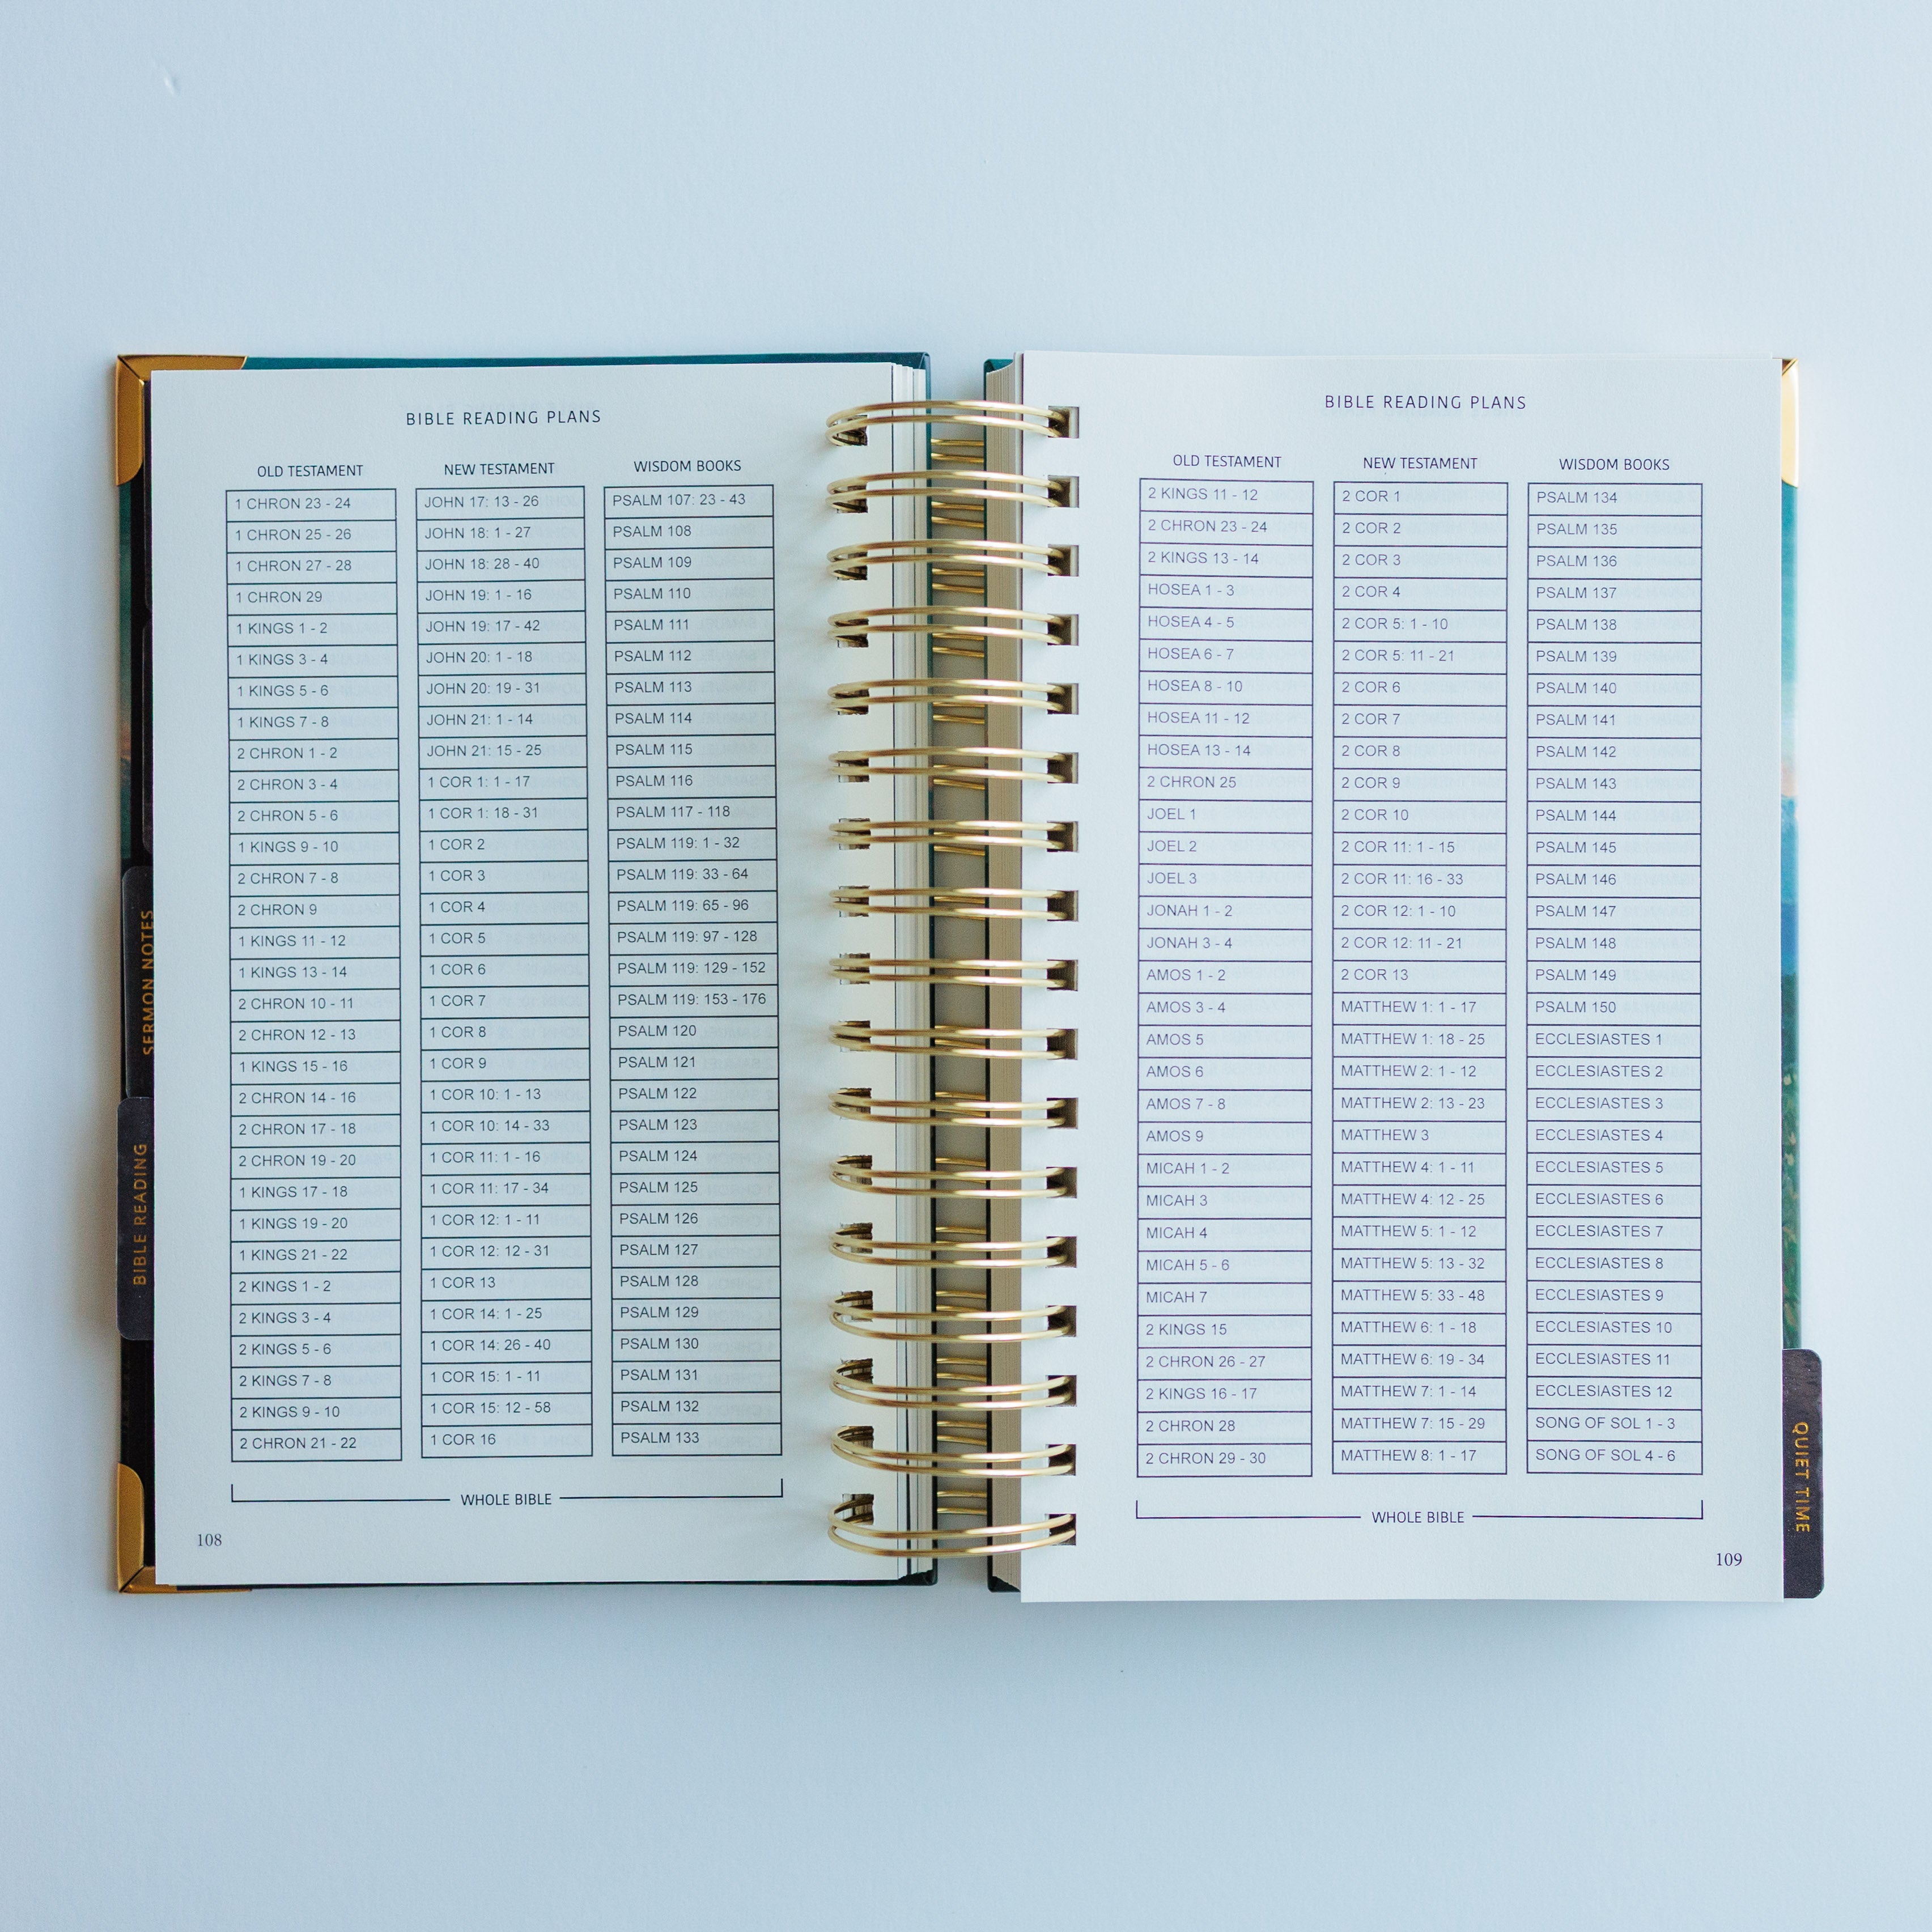 BIBLE READING PLANS
OLD TESTAMENT NEW TESTAMENT WISDOM BOOKS
1 CHRON 23 - 24 JOHN 17: 13 - 26 PSALM 107: 23 - 43
1 CHRON 25 - 26 JOHN 18: 1 - 27 PSALM 108
1 CHRON 27 - 28 JOHN 18: 28 - 40 PSALM 109
1 CHRON 29 JOHN 19: 1 - 16 PSALM 110
1 KINGS 1 - 2 JOHN 19: 17 - 42 PSALM 111
1 KINGS 3 - 4 JOHN 20: 1 - 18 PSALM 112
1 KINGS 5 - 6 JOHN 20: 19 - 31 PSALM 113
1 KINGS 7 - 8 JOHN 21: 1 - 14 PSALM 114
2 CHRON 1 - 2 JOHN 21: 15 - 25 PSALM 115
2 CHRON 3 - 4 1 COR 1: 1 - 17 PSALM 116
2 CHRON 5 - 6 1 COR 1: 18 - 31 PSALM 117 - 118
1 KINGS 9 - 10 1 COR 2 PSALM 119: 1 - 32
2 CHRON 7 - 8 1 COR 3 PSALM 119: 33 - 64
2 CHRON 9 1 COR 4 PSALM 119: 65 - 96
1 KINGS 11 - 12 1 COR 5 PSALM 119: 97 - 128
1 KINGS 13 - 14 1 COR 6 PSALM 119: 129 - 152
2 CHRON 10 - 11 1 COR 7 PSALM 119: 153 - 176
2 CHRON 12 - 13 1 COR 8 PSALM 120
1 KINGS 15 - 16 1 COR 9 PSALM 121
2 CHRON 14 - 16 1 COR 10: 1 - 13 PSALM 122
2 CHRON 17 - 18 1 COR 10: 14 - 33 PSALM 123
2 CHRON 19 - 20 1 COR 11: 1 - 16 PSALM 124
1 KINGS 17 - 18 1 COR 11: 17 - 34 PSALM 125
1 KINGS 19 - 20 1 COR 12: 1 - 11 PSALM 126
1 KINGS 21 - 22 1 COR 12: 12 - 31 PSALM 127
2 KINGS 1 - 2 1 COR 13 PSALM 128
2 KINGS 3 - 4 1 COR 14: 1 - 25 PSALM 129
2 KINGS 5 - 6 1 COR 14: 26 - 40 PSALM 130
2 KINGS 7 - 8 1 COR 15: 1 - 11 PSALM 131
2 KINGS 9 - 10 1 COR 15: 12 - 58 PSALM 132
2 CHRON 21 - 22 1 COR 16 PSALM 133
WHOLE BIBLE
108
SERMON NOTES
BIBLE READING
BIBLE READING PLANS
OLD TESTAMENT NEW TESTAMENT WISDOM BOOKS
2 KINGS 11 - 12 2 COR 1 PSALM 134
2 CHRON 23 - 24 2 COR 2 PSALM 135
2 KINGS 13 - 14 2 COR 3 PSALM 136
HOSEA 1 - 3 2 COR 4 PSALM 137
HOSEA 4 - 5 2 COR 5: 1 - 10 PSALM 138
HOSEA 6 - 7 2 COR 5: 11 - 21 PSALM 139
HOSEA 8 - 10 2 COR 6 PSALM 140
HOSEA 11 - 12 2 COR 7 PSALM 141
HOSEA 13 - 14 2 COR 8 PSALM 142
2 CHRON 25 2 COR 9 PSALM 143
JOEL 1 2 COR 10 PSALM 144
JOEL 2 2 COR 11: 1 - 15 PSALM 145
JOEL 3 2 COR 11: 16 - 33 PSALM 146
JONAH 1 - 2 2 COR 12: 1 - 10 PSALM 147
JONAH 3 - 4 2 COR 12: 11 - 21 PSALM 148
AMOS 1 - 2 2 COR 13 PSALM 149
AMOS 3 - 4 MATTHEW 1: 1 - 17 PSALM 150
AMOS 5 MATTHEW 1: 18 - 25 ECCLESIASTES 1
AMOS 6 MATTHEW 2: 1 - 12 ECCLESIASTES 2
AMOS 7 - 8 MATTHEW 2: 13 - 23 ECCLESIASTES 3
AMOS 9 MATTHEW 3 ECCLESIASTES 4
MICAH 1 - 2 MATTHEW 4: 1 - 11 ECCLESIASTES 5
MICAH 3 MATTHEW 4: 12 - 25 ECCLESIASTES 6
MICAH 4 MATTHEW 5: 1 - 12 ECCLESIASTES 7
MICAH 5 - 6 MATTHEW 5: 13 - 32 ECCLESIASTES 8
MICAH 7 MATTHEW 5: 33 - 48 ECCLESIASTES 9
2 KINGS 15 MATTHEW 6: 1 - 18 ECCLESIASTES 10
2 CHRON 26 - 27 MATTHEW 6: 19 - 34 ECCLESIASTES 11
2 KINGS 16 - 17 MATTHEW 7: 1 - 14 ECCLESIASTES 12
2 CHRON 28 MATTHEW 7: 15 - 29 SONG OF SOL 1 - 3
2 CHRON 29 - 30 MATTHEW 8: 1 - 17 SONG OF SOL 4 - 6
WHOLE BIBLE
109
QUIET TIME